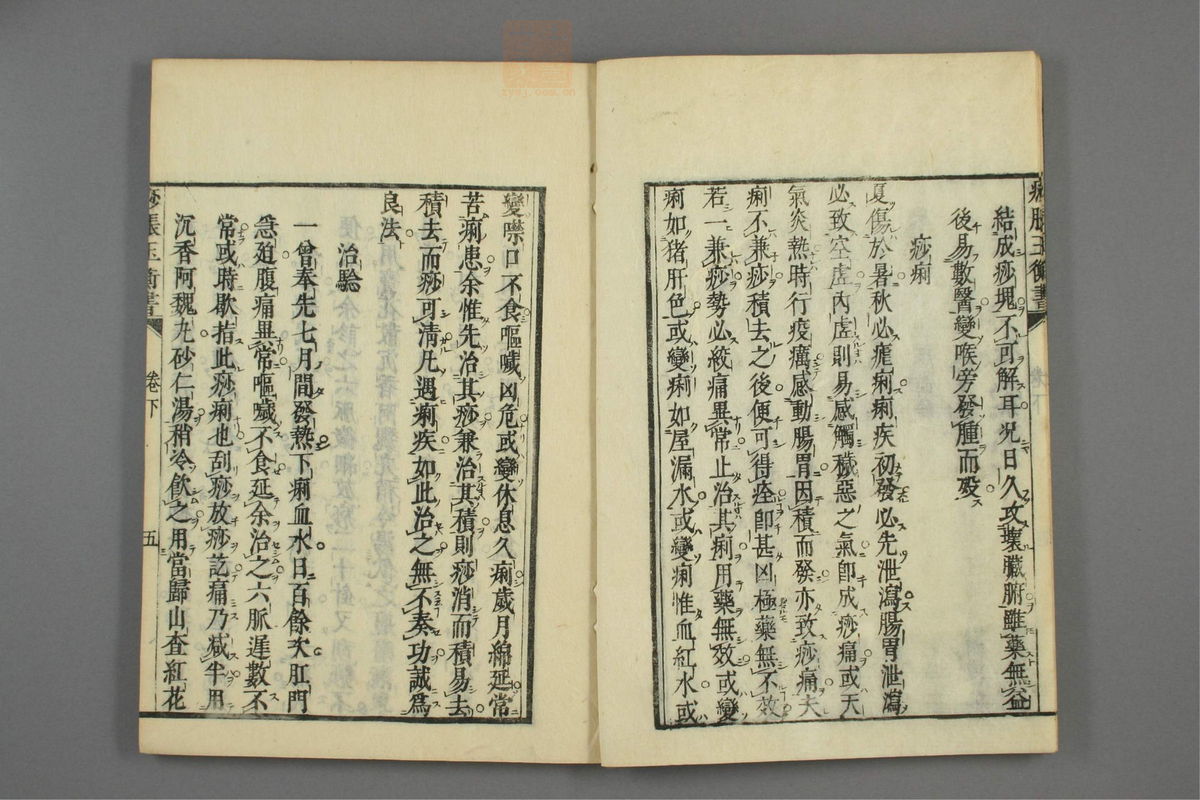 結成痧塊不可解耳况日久攻壞臟腑雖藥無益
後易數醫變喉旁發腫而歿
痧痢
夏傷於暑秋必瘧痢痢疾初發必先泄瀉腸胃泄瀉
必致空虛內虛則易感觸穢惡之氣卽成痧痛或天
氣炎熱時行疫癘感動腸胃因積而發亦致痧痛夫
痢不兼痧積去之後便可得痊卽甚凶極藥無不效
若一兼痧勢必絞痛異常止治其痢用藥無效或變
痢如猪肝色或變痢如屋漏水或變痢惟血紅水或
變噤口不食嘔噦凶危或變休息久痢歲月綿延常
苦痢患余惟先治其痧兼治其積則痧消而積易去
積去而痧可清凡遇痢疾如此治之無不奏功誠爲
良法
治驗
一曾奉先七月間發熱下痢血水日百餘次肛門
急廹腹痛異常嘔噦不食延余治之六脈遲數不
常或時歇指此痧痢也刮痧放痧訖痛乃减半用
沉香阿魏丸砂仁湯稍冷飲之用當歸山査紅花
痧脹玉衡書
卷下
五
zysj.com.cn